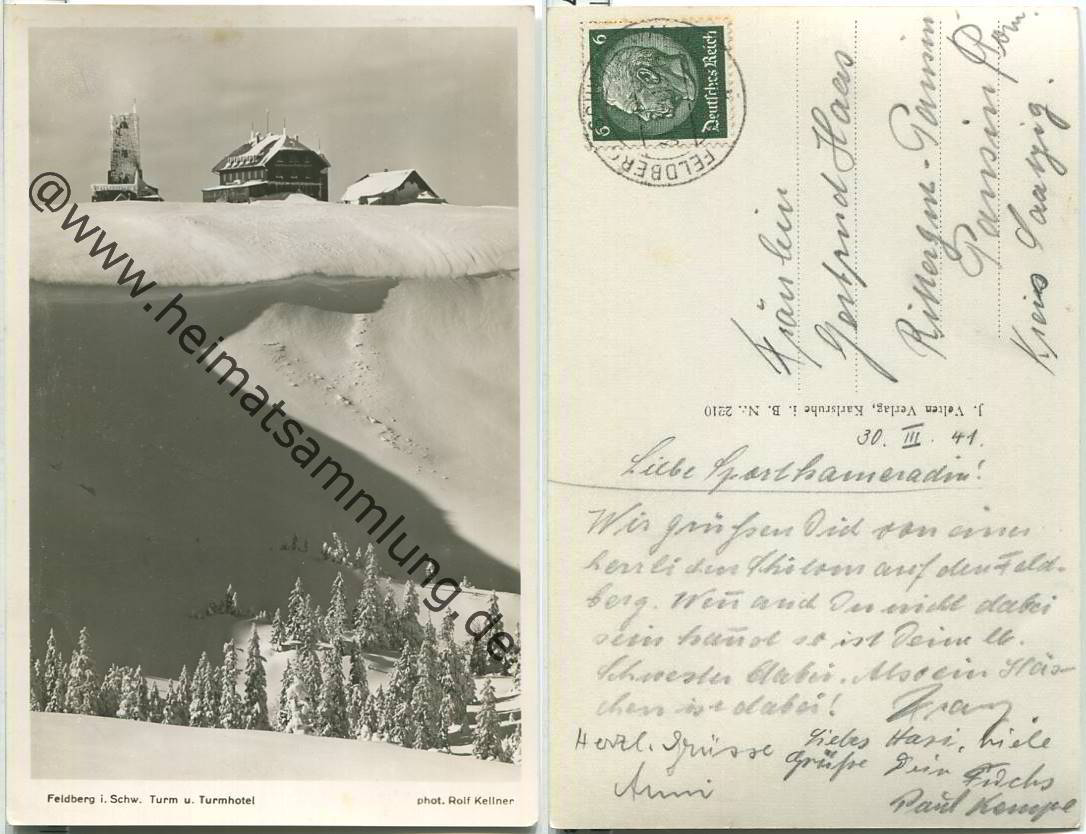 @www.heimatsammlung.de
Feldberg i. Schw. Turm u. Turmhotel
phot. Rolf Kellner
6 6
Deutsches Reich
FELDBERG
Fräulein
Gertrud Haas
Rittergut-Pansin
Pansin Pom.
Kreis Saatzig.
J. Velten Verlag, Karlsruhe i. B. Nr. 2210
30. III. 41.
Liebe Sportkameradin!
Wir grüßen Dich von einer
herrlichen Skitour auf dem Feld-
berg. Weñ auch Du nicht dabei
sein kañst so ist Deine lb.
Schwester dabei. Also ein Häs-
chen ist dabei! Franz
Herzl. Grüsse
Anni
Liebs Hasi, viele
Grüße Dein Fuchs
Paul Kempe